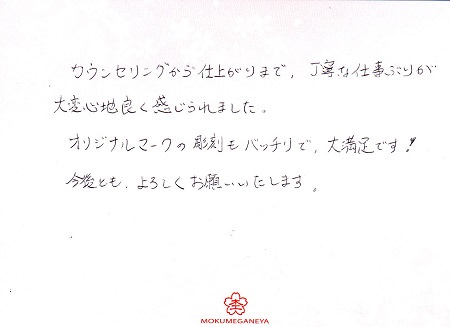 カウンセリングから仕上がりまで、丁寧な仕事ぶりが
大変心地良く感じられました。
オリジナルマークの彫刻もバッチリで、大満足です!
今後とも、よろしくお願いいたします。
MOKUMEGANEYA